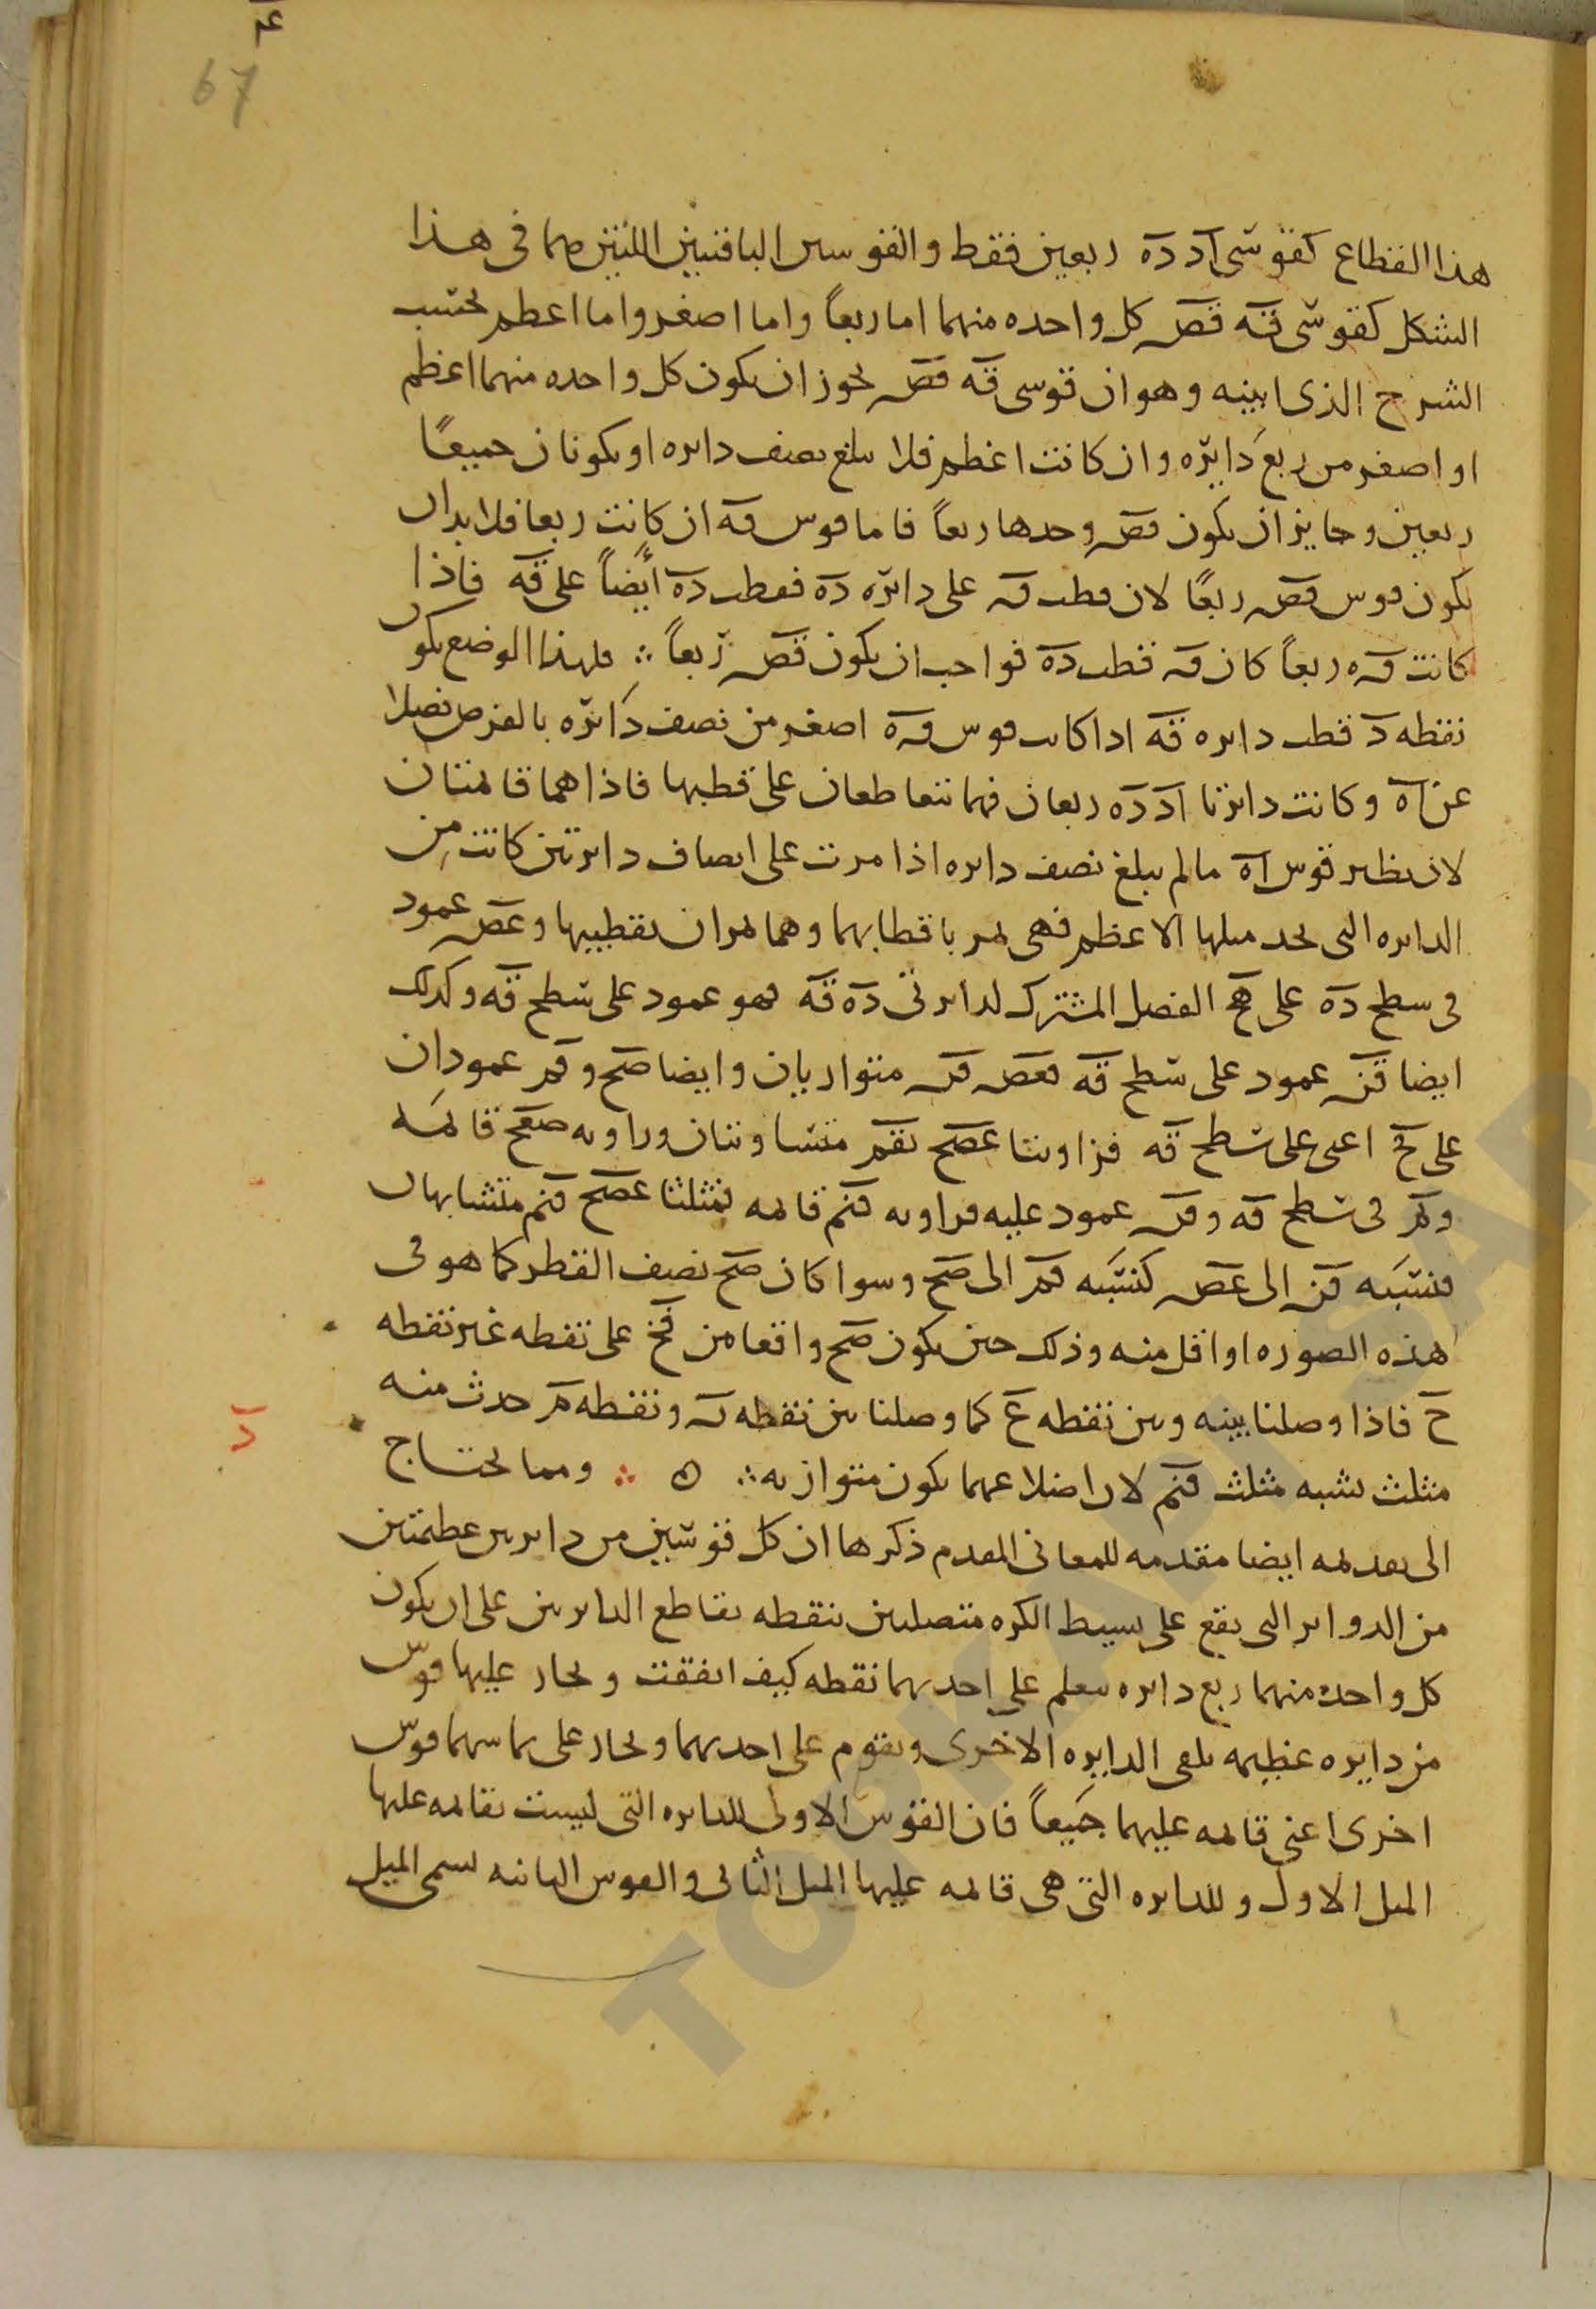 67
هذا القطاع كقوسى اد ده ربعين فقط والقوسين الباقيتين اللتين هما فى هذا
الشكل كقوسى قه قص كل واحده منهما اما ربعاً واما اصغر واما اعظم بحسب
الشرح الذى ابينه وهو ان قوسى قه قص يجوز ان يكون كل واحده منهما اعظم
او اصغر من ربع دايره وان كانت اعظم فلا يبلغ نصف دايره او يكونان جميعًا
ربعين وجايز ان يكون قص وحدها ربعاً فاما قوس قه ان كانت ربعا فلا بد ان
يكون قوس قص ربعًا لان قطب قه على دايره ده فقطب ده أيضاً على قه فاذا
كانت قه ربعاً كان ق قطب ده فواجب ان يكون قص ربعاً ∴ فلهذا الوضع يكون
نقطه د قطب دايره قه اذا كانت قوس قه اصغر من نصف دايره بالفرض فضلا
عن اه وكانت دايرتا اد ده ربعان فهما تتقاطعان على قطبها فاذا هما قائمتان
لان نظير قوس اه ما لم يبلغ نصف دايره اذا مرت على انصاف دايرتين كانت من
الدايره التى يحد ميلها الاعظم فهى تمر باقطابهما وهما تمران بقطبيها وعص عمود
فى سطح ده على هح الفصل المشترك لدايرتى ده قه فهو عمود على سطح قه وكذلك
ايضا قن عمود على سطح قه فعص قن متوازيان وايضا صح وقم عمودان
على خح اعنى على سطح قه فزاويتا عصح نقم متساويتان وزاويه صعح قائمه
وقم فى سطح قه وقن عمود عليه فزاويه قنم قائمه فمثلثا عصح قنم متشابهان
فنسبه قن الى عص كنسبه قم الى صح وسوا كان صح نصف القطر كما هو فى
هذه الصوره او اقل منه وذلك حين يكون صح واقعا من خح على نقطه غير نقطه
ح فاذا وصلنا بينه وبين نقطه ع كما وصلنا بين نقطه ن ونقطه م حدث منه
مثلث يشبه مثلث قنم لان اضلاعهما يكون متوازيه ∴ ه ∴ ومما يحتاج
الى تقديمه ايضا مقدمه للمعانى المقدم ذكرها ان كل قوسين من دايرتين عظيمتين
من الدواير التى يقع على بسيط الكره متصلين بنقطه تقاطع الدايرتين على ان يكون
كل واحده منهما ربع دايره يتعلم على احديهما نقطه كيف اتفقت ويجاز عليها قوس
من دايره عظيمه تلقى الدايره الاخرى ويقوم على احديهما ويجاز على نهايتهما قوس
اخرى اعنى قائمه عليهما جميعاً فان القوس الاولى للدايره التى ليست بقائمه عليها
الميل الاول وللدايره التى هى قائمه عليها الميل الثانى والقوس الثانيه يسمى الميل